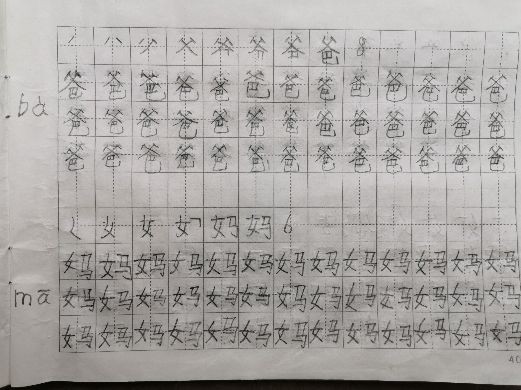 丿 八 父 爸 8
爸 爸 爸 爸 爸 爸 爸 爸 爸 爸 爸 爸 爸
bà 爸 爸 爸 爸 爸 爸 爸 爸 爸 爸 爸 爸 爸
爸 爸 爸 爸 爸 爸 爸 爸 爸 爸 爸 爸 爸
女 妈 妈 6
妈 妈 妈 妈 妈 妈 妈 妈 妈 妈 妈 妈 妈
mā 妈 妈 妈 妈 妈 妈 妈 妈 妈 妈 妈 妈 妈
妈 妈 妈 妈 妈 妈 妈 妈 妈 妈 妈 妈 妈